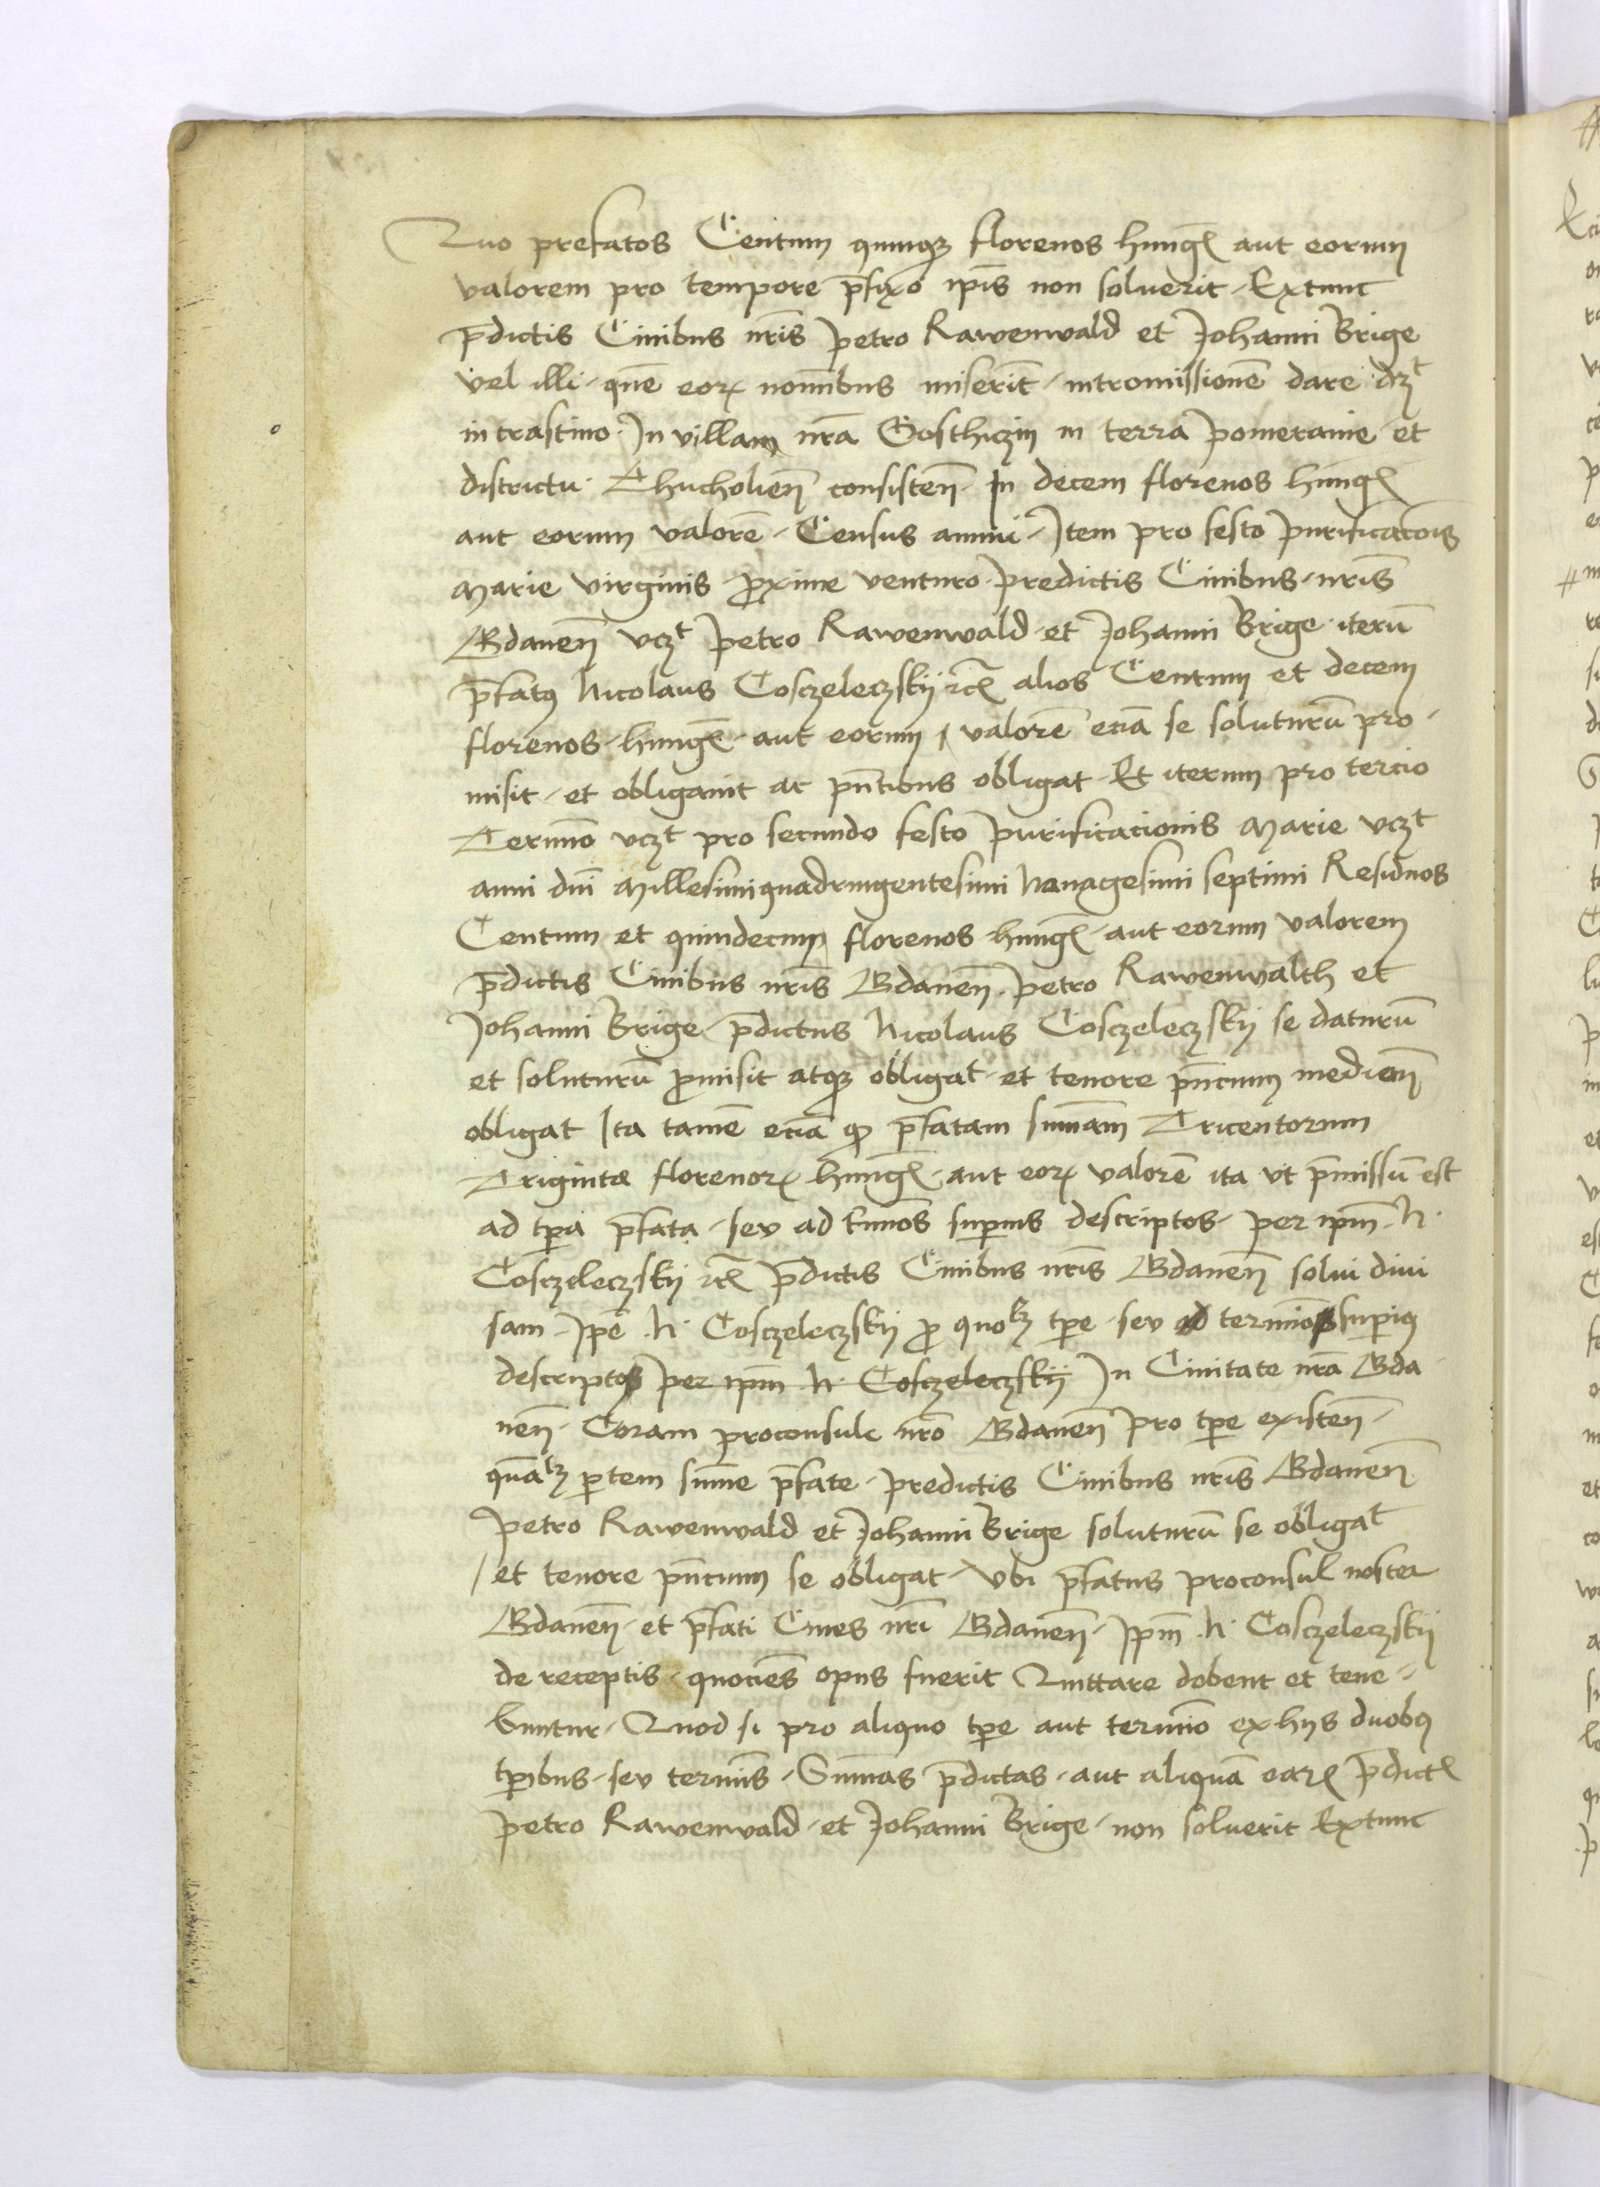 Quo prefatos Centum quinqȝ florenos hungꝭ aut eorum
valorem pro tempore p̄fixo ip̄is non soluerit Extunc
p̄dictis Ciuibus nr̄is Petro Rawenwald et Johanni Brige
vel illi quē eorꝝ nomībus miserīt intromissionē dare dꝫt
in crastino In villam nr̄a Gosthczin in terra Pomeranie et
districtu Thucholien̄ consisten̄ In decem florenos hungꝭ
aut eorum valorē Census annui Item pro festo Purificat̄ois
Marie virginis ꝓxime venturo predictis Ciuibus nr̄is
Gdanen̄ vcꝫt Petro Rawenwald et Johanni Brige iterū
p̄fatꝰ Nicolaus Cosczeleczskij ⁊cꝭ alios Centum et decem
florenos hungꝭ aut eorum valorē eciā se soluturū pro
misit et obligauit ac pn̄tibus obligat Et iterum pro tercio
Termīo vcꝫt pro secundo festo Purificacionis Marie vcꝫt
anni dn̄i Millesimiquadringentesimi Nonagesimi septimi Residuos
Centum et quindecim florenos hungꝭ aut eorum valorem
p̄dictis Ciuibus nr̄is Gdanen̄ Petro Rawenwalth et
Johanni Brige p̄dictus Nicolaus Cosczeleczskij se daturū
et soluturū ꝓmisit atqȝ obligat et tenore pn̄cium medien̄
obligat Ita tamē eciā qꝫ p̄fatam sum̄am Tricentorum
Triginta florenorꝝ hungꝭ aut eorꝝ valorē ita vt p̄missū est
ad tp̄a p̄fata seu ad t̄minos superius descriptos per ipm̄ N
Cosczeleczskij ⁊cꝭ p̄dictis Ciuibus nr̄is Gdanen̄ solui diui
sam Ip̄e N Cosczeleczskij ꝓ quolꝫ tp̄e seu ad terminos superiꝰ
descriptos per ipm̄ N Cosczeleczskij In Ciuitate nr̄a Gda
nen̄ Coram proconsule nr̄o Gdanen̄ pro tp̄e existen̄
quālꝫ ꝑtem sum̄e p̄fate predictis Ciuibus nr̄is Gdanen̄
Petro Rawenwald et Johanni Brige soluturū se obligat
et tenore pn̄cium se obligat Vbi p̄fatus proconsul noster
Gdanen̄ et p̄fati Ciues nr̄i Gdanen̄ Ipm̄ N Cosczeleczskij
de receptis quociēs opus fuerit Quittare debent et tene
buntur Quod si pro aliquo tp̄e aut termīo ex hijs duobꝰ
tp̄ibus seu termīs Sum̄as p̄dictas aut aliquā earꝝ p̄dictꝭ
Petro Rawenwald et Johanni Brige non soluerit Extunc